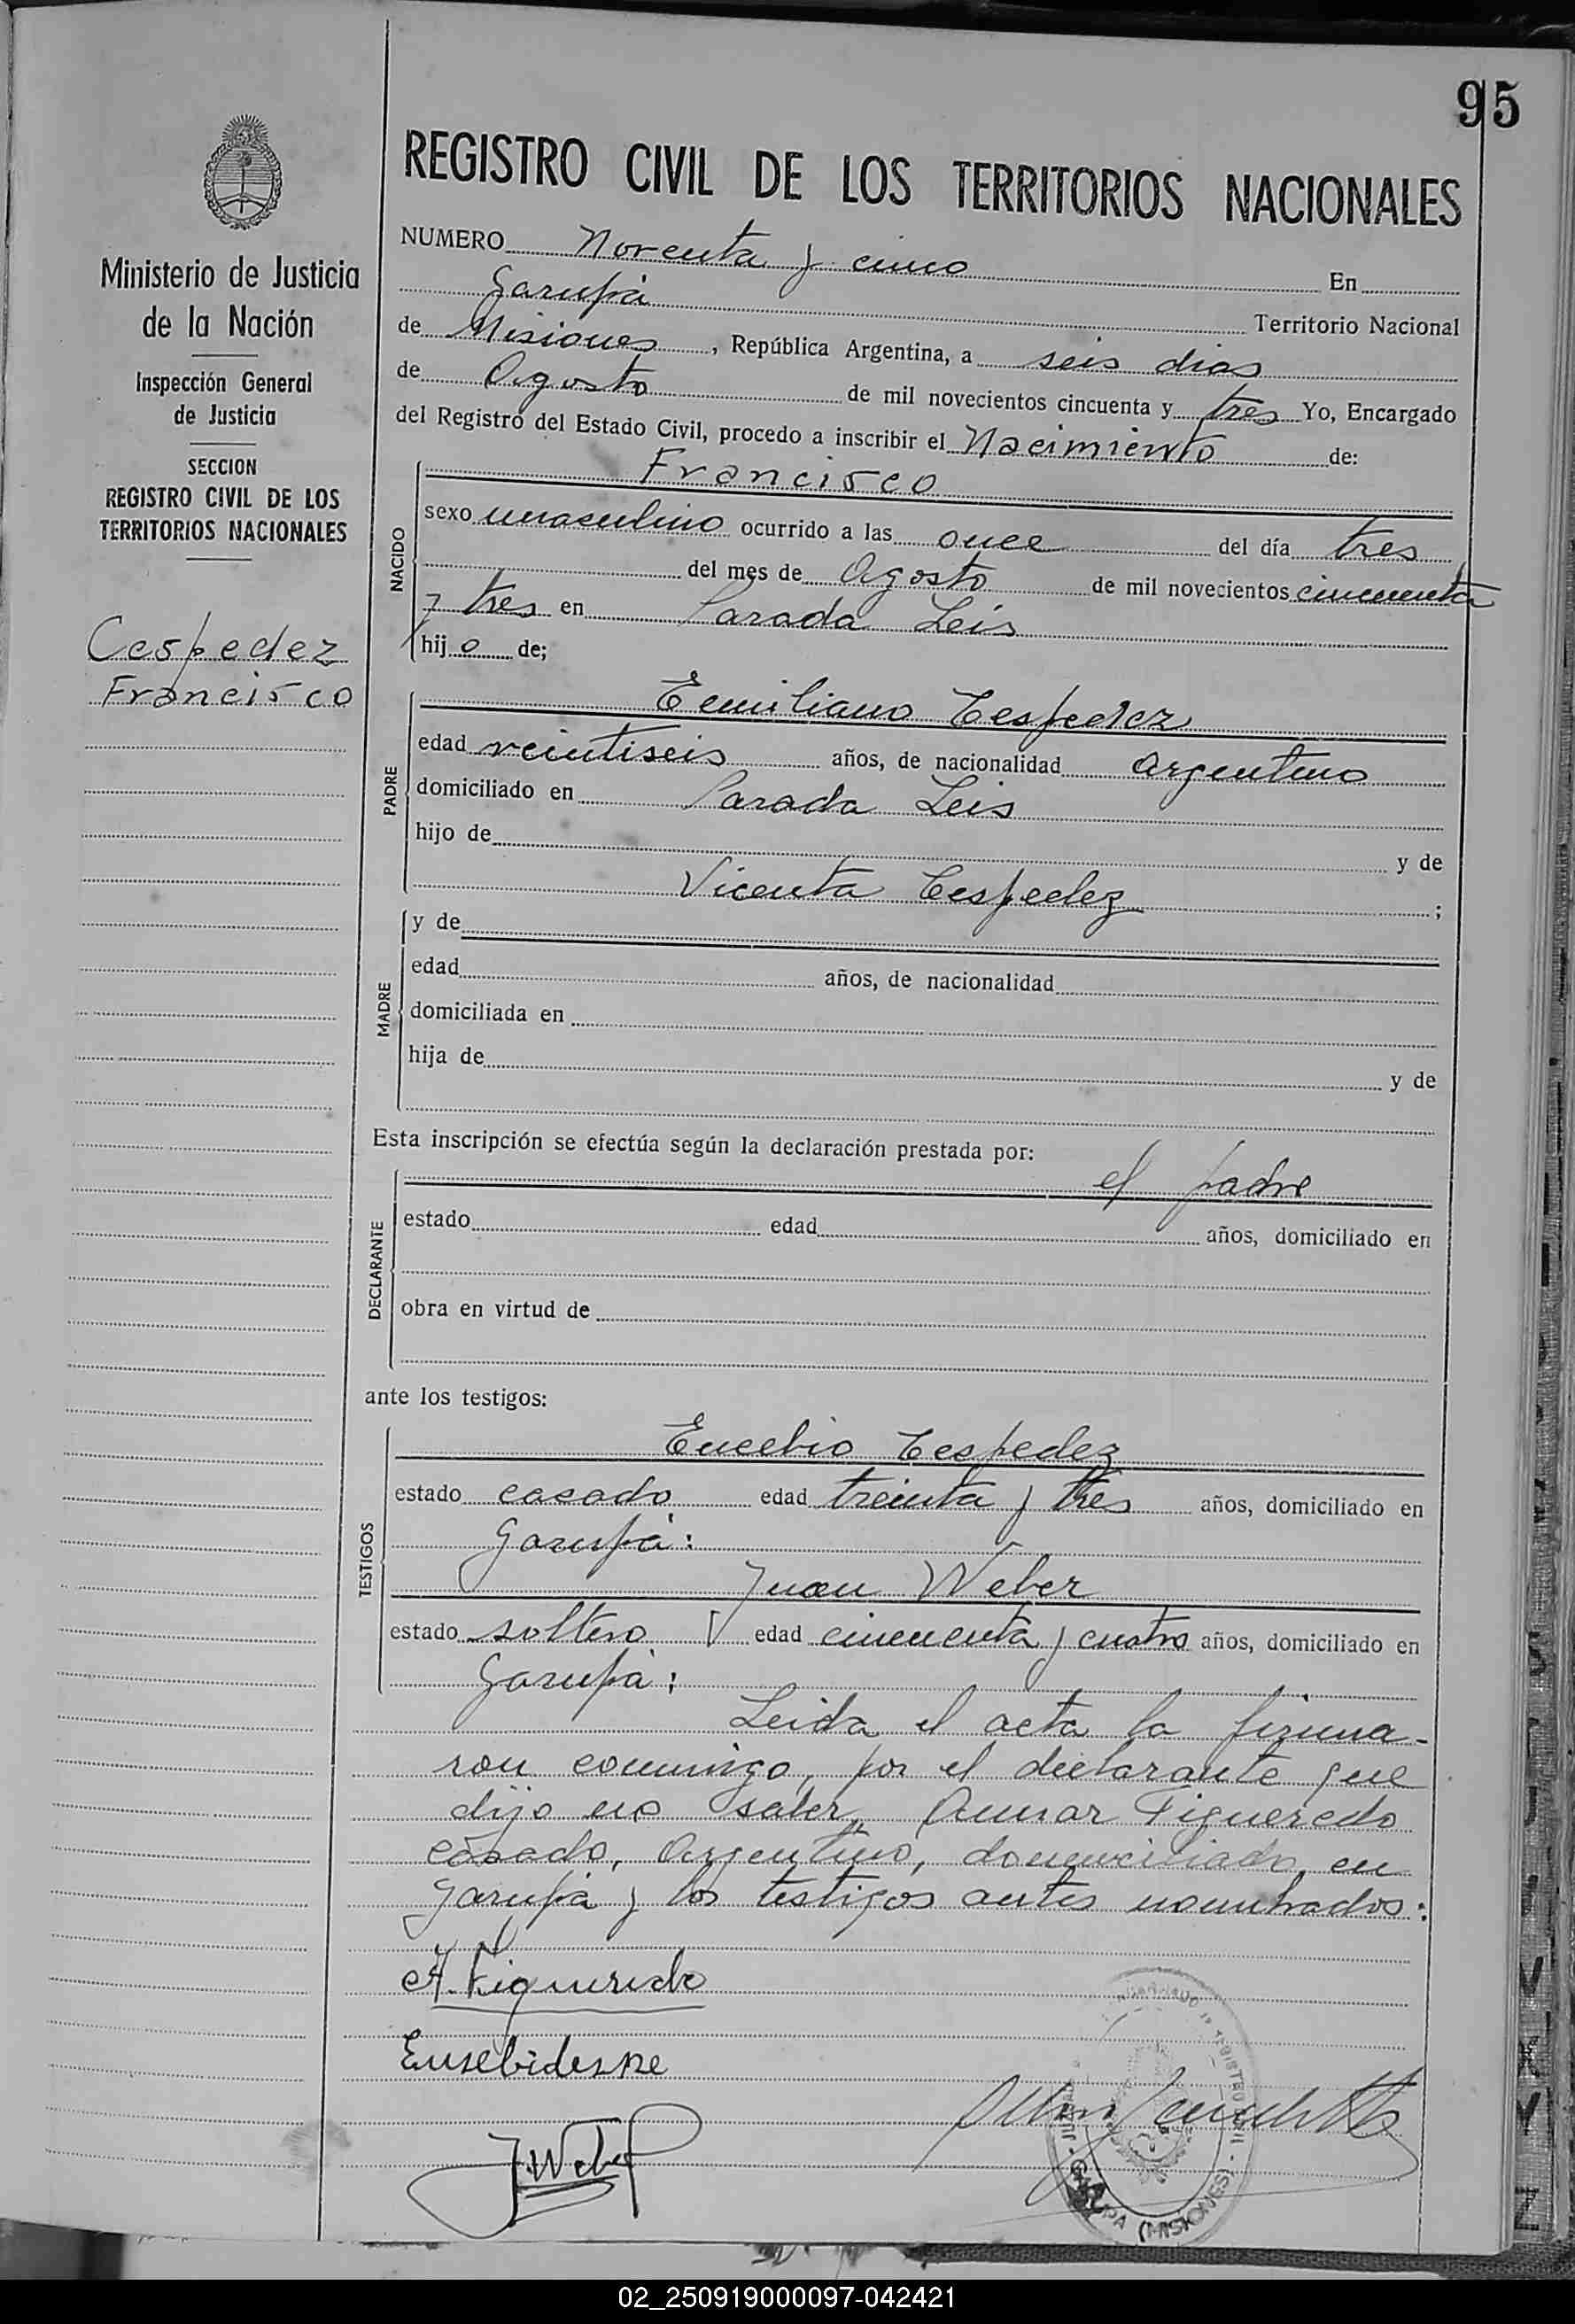 95
REGISTRO CIVIL DE LOS TERRITORIOS NACIONALES
Ministerio de Justicia
de la Nación
Inspección General
de Justicia
SECCION
REGISTRO CIVIL DE LOS
TERRITORIOS NACIONALES
Cespedez
Francisco
NUMERO Noventa y cinco En
Garupá Territorio Nacional
de Misiones, República Argentina, a seis dias
de Agosto de mil novecientos cincuenta y tres Yo, Encargado
del Registro del Estado Civil, procedo a inscribir el Nacimiento de:
NACIDO
Francisco
sexo masculino ocurrido a las once del día tres
del mes de Agosto de mil novecientos cincuenta
y tres en Parada Leis
hijo de;
PADRE
Emiliano Cespedez
edad veintiseis años, de nacionalidad Argentino
domiciliado en Parada Leis
hijo de y de
Vicenta Cespedez ;
MADRE
y de
edad años, de nacionalidad
domiciliada en
hija de y de
Esta inscripción se efectúa según la declaración prestada por:
DECLARANTE
el padre
estado edad años, domiciliado en
obra en virtud de
ante los testigos:
TESTIGOS
Eucebio Cespedez
estado casado edad treinta y tres años, domiciliado en
Garupá:
Juan Weber
estado soltero edad cincuenta y cuatro años, domiciliado en
Garupá:
Leida el acta la firma-
ron conmigo, por el declarante que
dijo no saber, Figueredo
casado, Argentino, domiciliado en
Garupá y los testigos antes nombrados:
A. Figueredo
J. Weber
GARUPA (MISIONES)
02_250919000097-042421